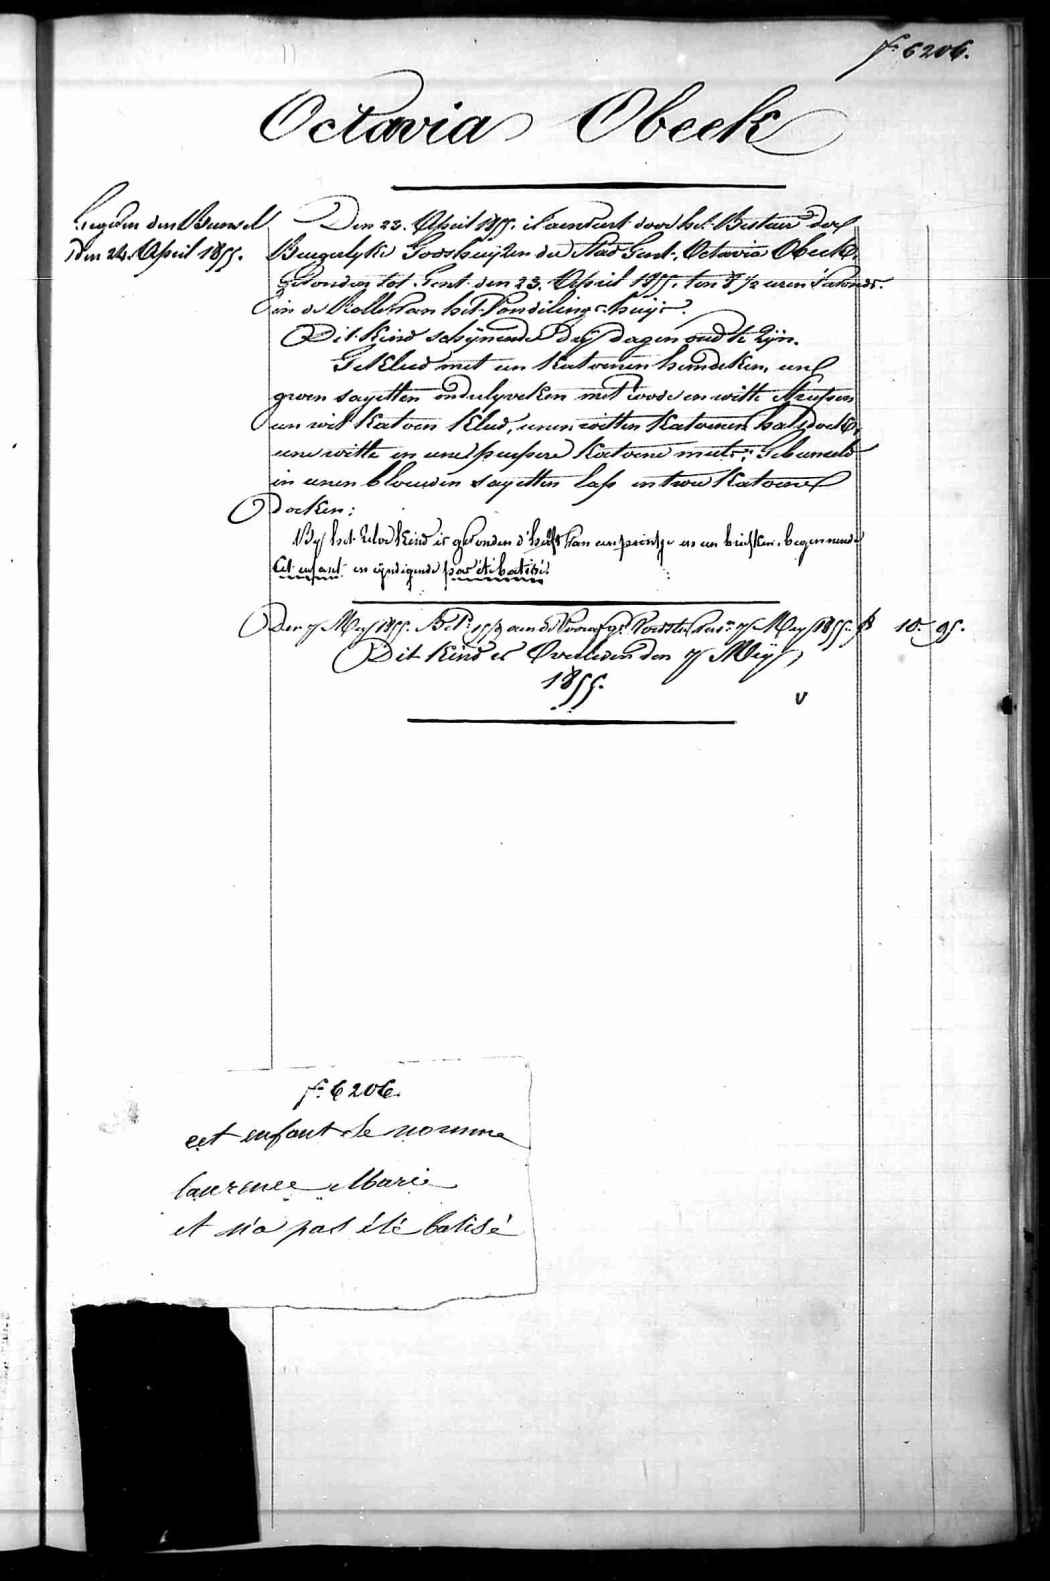 fº 6206.
Octavia Obeek
Gegeven den Bussel
Den 24. April 1855.
Den 23. April 1855. is aenveert door het Bestier der
Burgerlyke Godshuyzen der Stad Gent, Octavia Obeek,
Gevonden tot Gent den 23. April 1855. ten 8 1/2 uren s'avonds.
in de Rolle van het Vondelings-huys.
Dit Kind schynende dry dagen oud te zyn.
Gekleed met een Katoenen hemdeken, een
groen sayetten onderlyveken met roode en witte streepen
een wit Katoen Kleed, eenen witten Katoenen halsdoek,
eene witte en eene purpere Katoene muts; Gebunseld
in eenen blauwen sayetten lap en twee Katoene
doeken:
By het zelve Kind is gevonden d'helft van een prentje en een briefken, beginnende
Cet enfant en eyndigende pas été batisé.
Den 7 Mey 1855. 7 Mey 1855. 10 95.
Dit Kind is Overleden den 7 Mey
1855.
v
fº 6206.
cet enfant se nomme
laurence Marie
et n'a pas été batisé